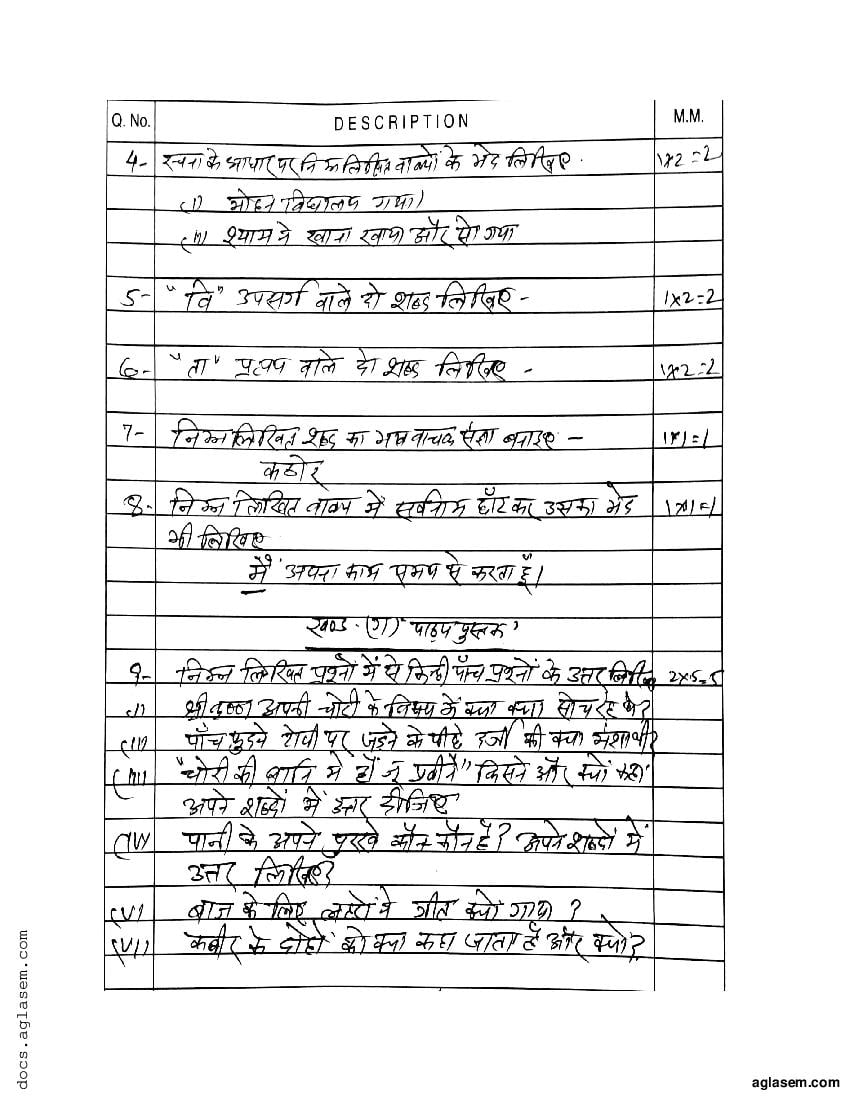 Q. No. DESCRIPTION M.M.
4- रचना के आधार पर निम्नलिखित वाक्यों के भेद लिखिए. 1x2=2
(i) मोहन विद्यालय गया।
(ii) श्याम ने खाना खाया और सो गया
5- "वि" उपसर्ग वाले दो शब्द लिखिए - 1x2=2
6- "ता" प्रत्यय वाले दो शब्द लिखिए - 1x2=2
7- निम्नलिखित शब्द का भाव वाचक संज्ञा बनाइए - 1x1=1
कठोर
8- निम्न लिखित वाक्य में सर्वनाम छाँट कर उसका भेद 1x1=1
भी लिखिए
मैं अपना काम समय से करता हूँ।
खण्ड-(ग) "पाठ्य पुस्तक"
9- निम्न लिखित प्रश्नों में से किन्ही पाँच प्रश्नों के उत्तर लिखिए 2x5=5
(i) श्रीकृष्ण अपनी चोटी के विषय में क्या क्या सोच रहे थे?
(ii) पाँच फुंदने टोपी पर जड़ने के पीछे दर्जी की क्या मंशा थी?
(iii) "चोरी की बानि में हौं जू प्रवीने" किसने और क्यों कहा
अपने शब्दों में उत्तर दीजिए
(iv) पानी के अपने पुरखे कौन कौन हैं? अपने शब्दों में
उत्तर लिखिए?
(v) बाज के लिए लहरों ने गीत क्यों गाया ?
(vi) कबीर के दोहों को क्या कहा जाता है और क्यों?
docs.aglasem.com
aglasem.com